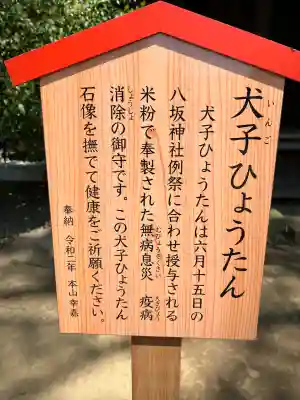 犬子ひょうたん
いんご
犬子ひょうたんは六月十五日の
八坂神社例祭に合わせ授与される
米粉で奉製された無病息災 疫病
むびょうそくさい えきびょう
消除の御守です。この犬子ひょうたん
しょうじょ
石像を撫でて健康をご祈願ください。
奉納 令和二年 本山幸嘉